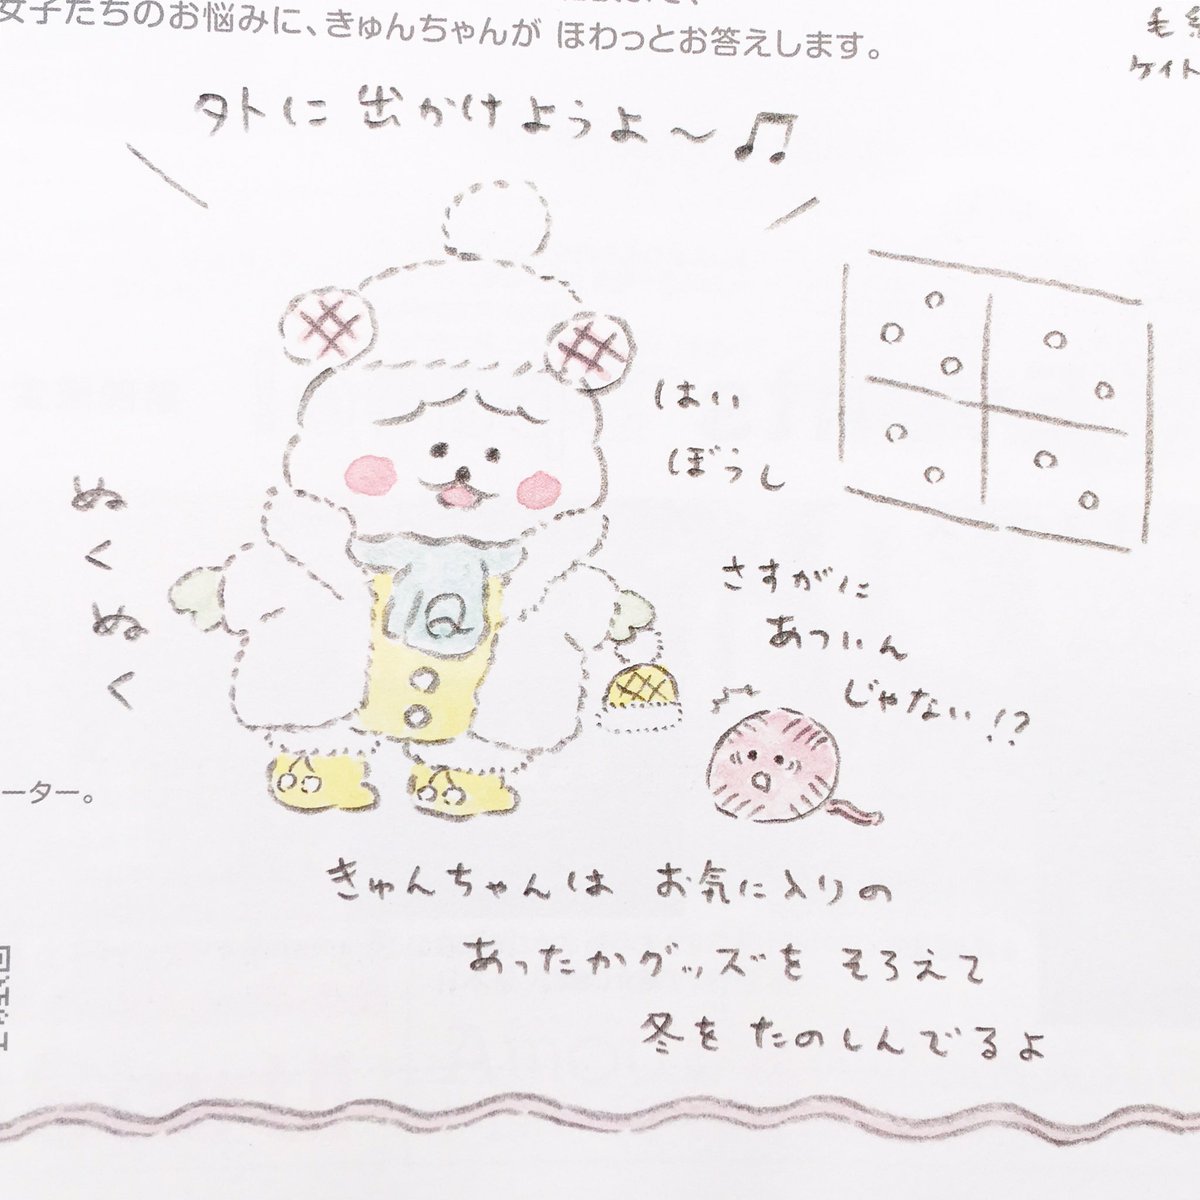 女子たちのお悩みに、きゅんちゃんが ほわっとお答えします。
毛糸
ケイト
外に 出かけようよ〜♫
はい
ぼうし
ぬくぬく
Q
さすがに
あついん
じゃない!?
ーター。
きゅんちゃんは お気に入りの
あったかグッズを そろえて
冬を たのしんでるよ